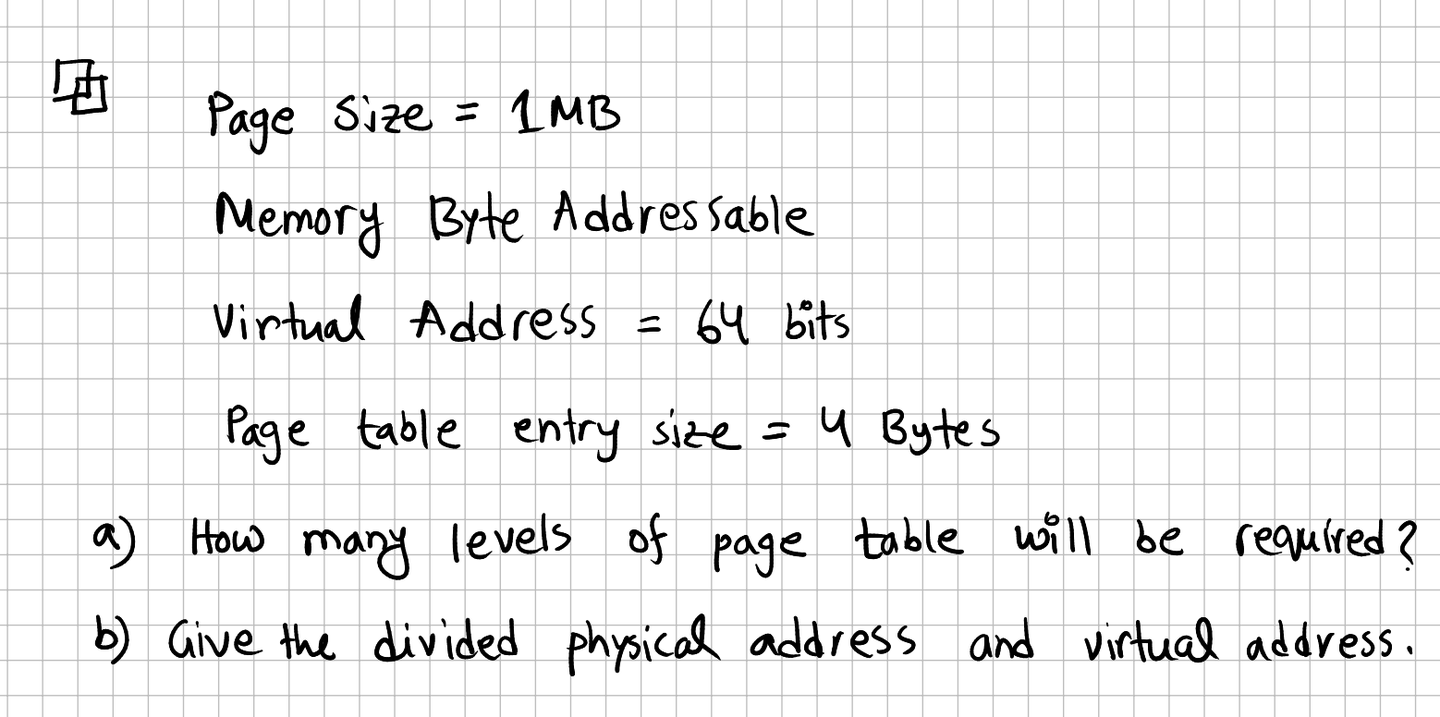 Page Size = 1MB
Memory Byte Addressable
Virtual Address = 64 bits
Page table entry size = 4 Bytes
a) How many levels of page table will be required?
b) Give the divided physical address and virtual address.